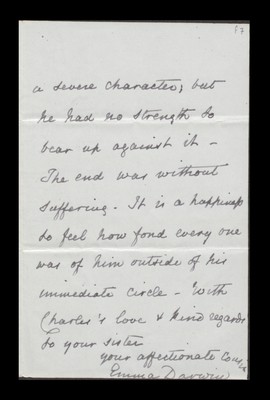 17
a severe character; but
he had no strength to
bear up against it –
The end was without
suffering – It is a happiness
to feel how fond every one
was of him outside of his
immediate circle – With
Charles's love & kind regards
to your sister
your affectionate
Emma Darwin